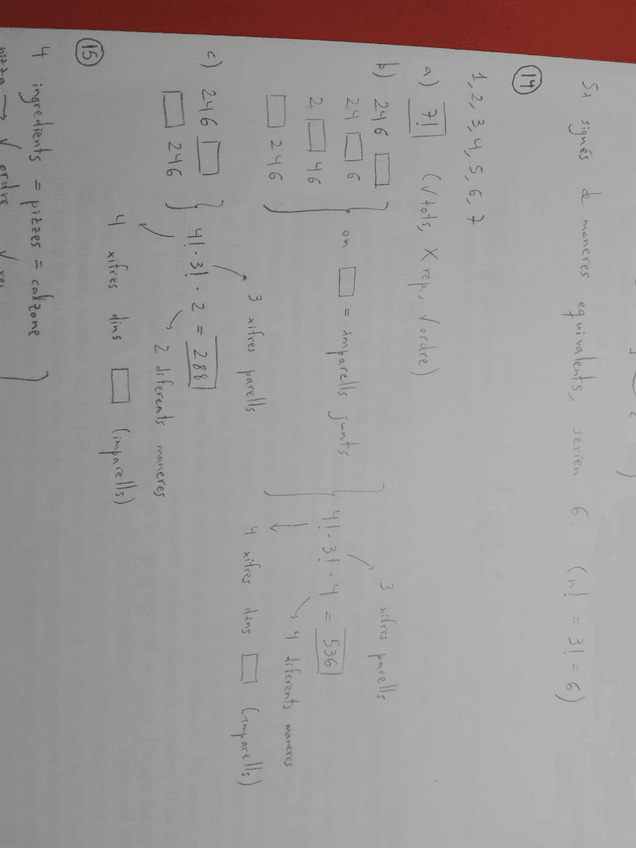 Si sigués de maneres equivalents, serien 6. (n! = 3! = 6)
14
1, 2, 3, 4, 5, 6, 7
a) 7! (√ tots, X rep., √ ordre)
b) 246 □
24 □ 6
2 □ 46
□ 246
on □ = imparells junts
4! · 3! · 4 = 536
3 xifres parells
4 diferents maneres
4 xifres dins □ (imparells)
c) 246 □
□ 246
4! · 3! · 2 = 288
3 xifres parells
2 diferents maneres
4 xifres dins □ (imparells)
15
4 ingredients = pizzes = calzone
pizza → √ ordre √